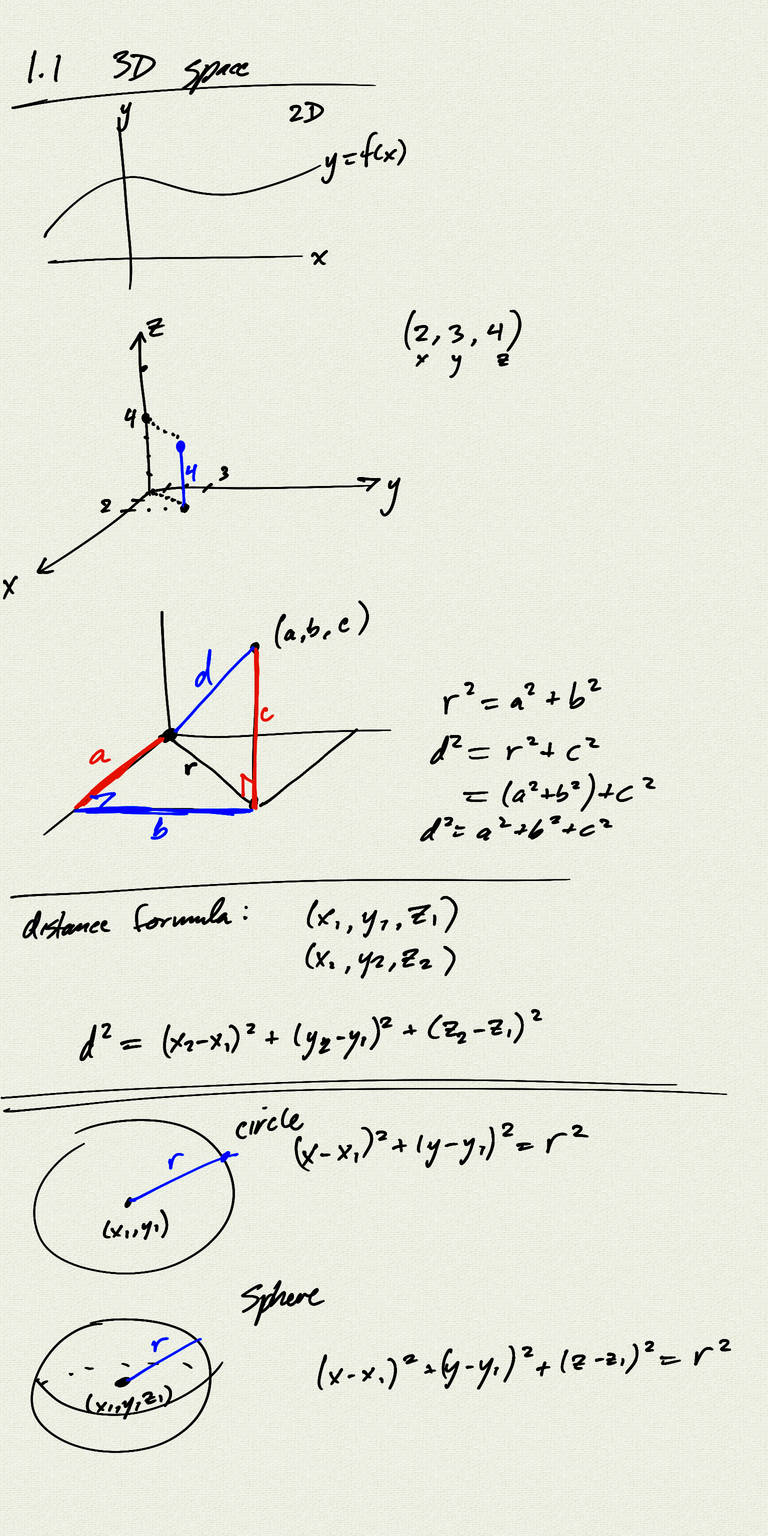 1.1 3D space
y 2D
y=f(x)
x
z
(2, 3, 4)
x y z
4
4 3
y
2
x
(a, b, c)
d
c
a
r
b
r² = a² + b²
d² = r² + c²
= (a²+b²)+c²
d² = a²+b²+c²
distance formula: (x₁, y₁, z₁)
(x₂, y₂, z₂)
d² = (x₂-x₁)² + (y₂-y₁)² + (z₂-z₁)²
circle
r (x-x₁)² + (y-y₁)² = r²
(x₁, y₁)
Sphere
r
(x-x₁)² + (y-y₁)² + (z-z₁)² = r²
(x₁, y₁, z₁)